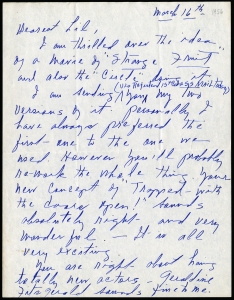 March 16th
Dearest Lil,
I am thrilled over the idea
of a Movie of "Strange Fruit"
and also the "Circle"
I am sending you my two
versions of it personally I
have always preferred the
first- one to the one we
used. However you'll probably
re-work the whole thing. Your
new concept of "Trapped- with
the door open!" sounds
absolutely right and very
wonderful - It is all
very exciting.
You are right about having
totally new actors - Geraldine
Fitzgerald sounds fine to me